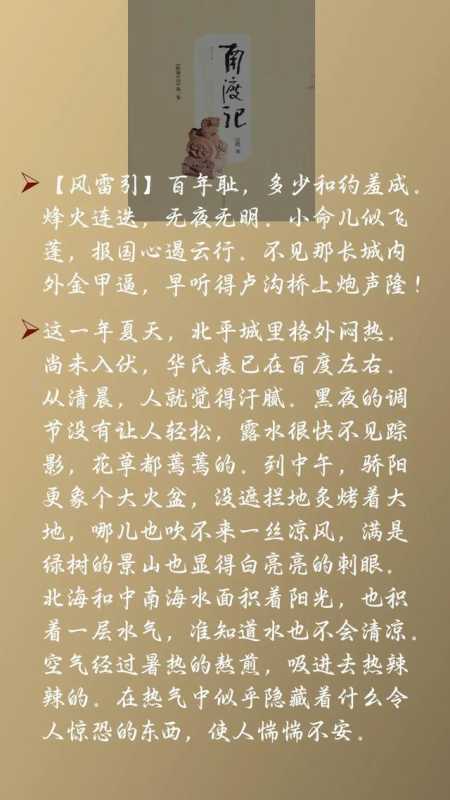 南渡记
【风雷引】百年耻，多少和约羞成．
烽火连迭，无夜无明．小命儿似飞
蓬，报国心遏云行．不见那长城内
外金甲逼，早听得卢沟桥上炮声隆！
这一年夏天，北平城里格外闷热．
尚未入伏，华氏表已在百度左右．
从清晨，人就觉得汗腻．黑夜的调
节没有让人轻松，露水很快不见踪
影，花草都蔫蔫的．到中午，骄阳
更象个大火盆，没遮拦地炙烤着大
地，哪儿也吹不来一丝凉风，满是
绿树的景山也显得白亮亮的刺眼．
北海和中南海水面积着阳光，也积
着一层水气，准知道水也不会清凉．
空气经过暑热的熬煎，吸进去热辣
辣的．在热气中似乎隐藏着什么令
人惊恐的东西，使人惴惴不安．